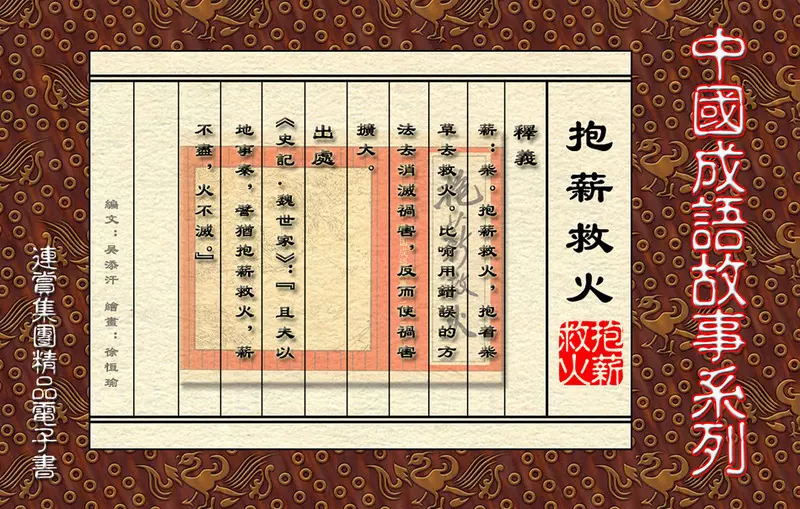 中國成語故事系列
抱薪救火
抱薪
救火
釋義
薪：柴。抱薪救火，抱着柴
草去救火。比喻用錯誤的方
法去消滅禍害，反而使禍害
擴大。
出處
《史記．魏世家》：『且夫以
地事秦，譬猶抱薪救火，薪
不盡，火不滅。』
抱薪救火
編文：吳添汗　繪畫：徐恒瑜
連賞集團精品電子書